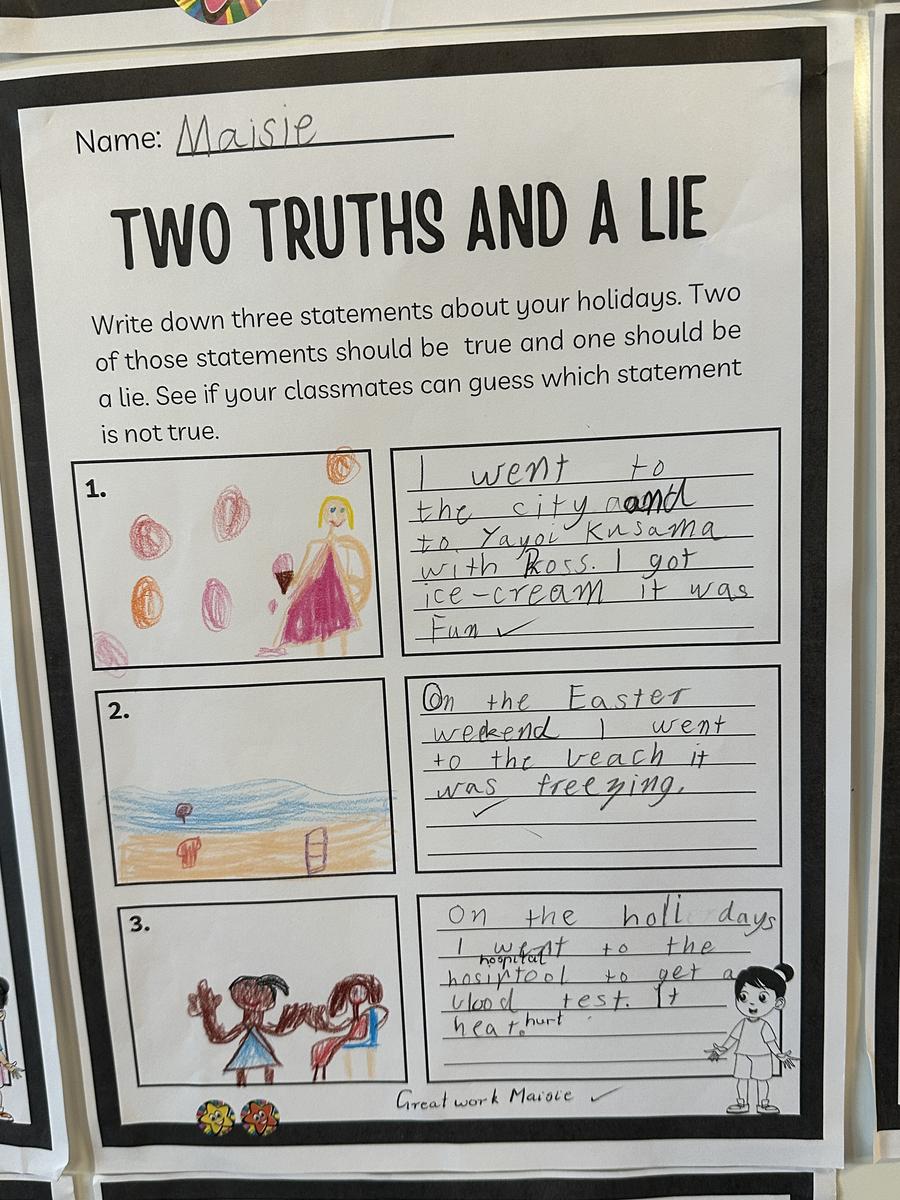 Name: Maisie
TWO TRUTHS AND A LIE
Write down three statements about your holidays. Two
of those statements should be true and one should be
a lie. See if your classmates can guess which statement
is not true.
1.
I went to
the city and
to Yayoi Kusama
with Ross. I got
ice-cream it was
Fun ✓
2.
On the Easter
weekend I went
to the beach it
was freezing.
✓
3.
On the holidays
I went to the
hospital
hosiptool to get a
blood test. It
heat. hurt
Great work Maisie ✓